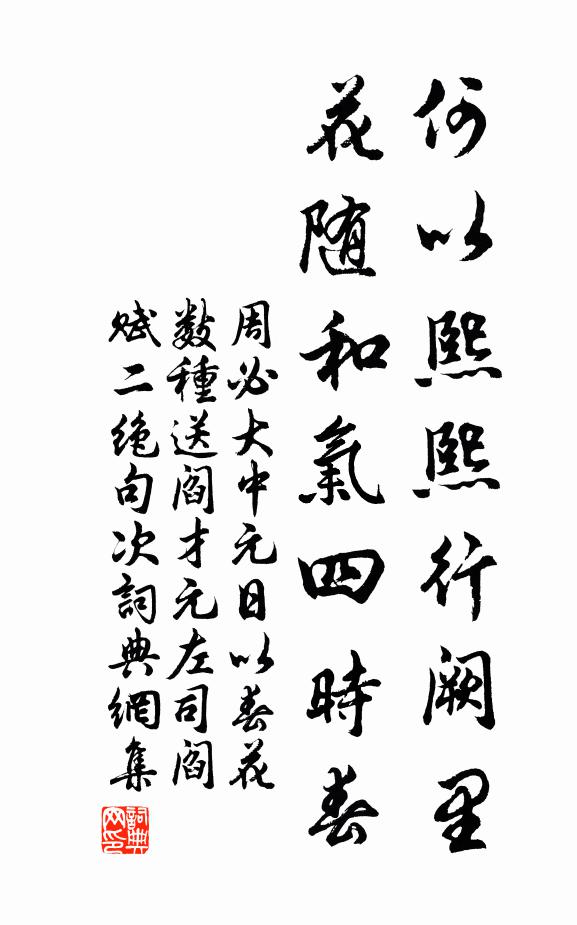 何以熙熙行阙里
花随和氣四時春
周必大中元日以春花
数種送阎才元左司阎
赋二绝句次詞典網集
詞典网印